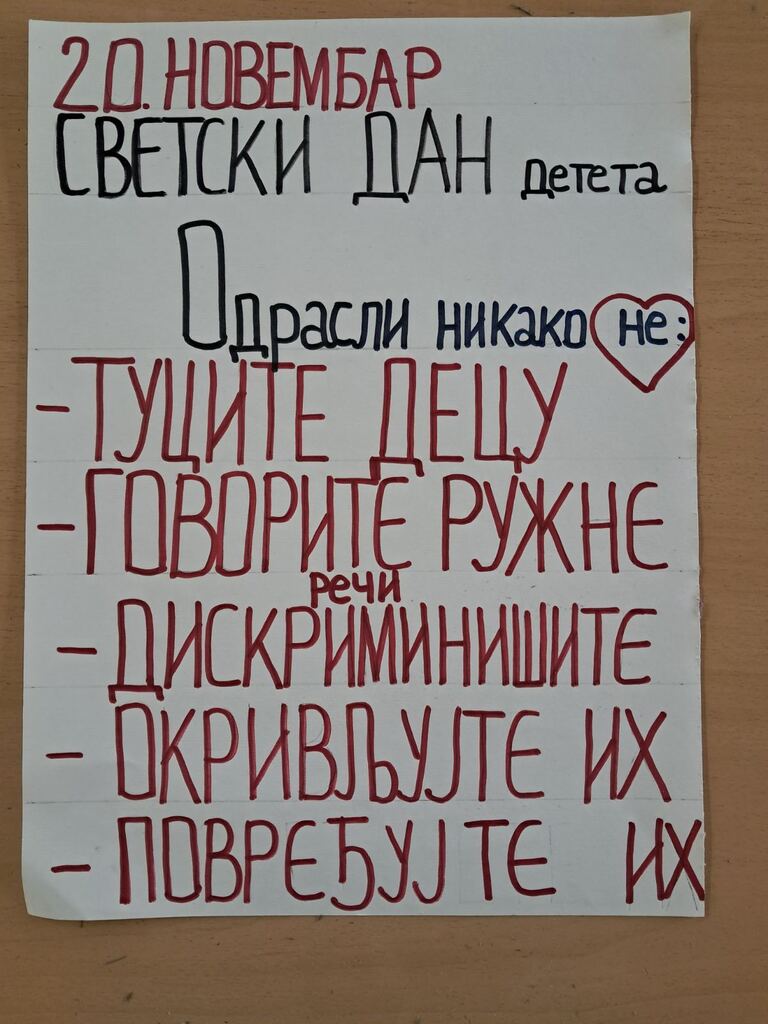 20. НОВЕМБАР
СВЕТСКИ ДАН детета
Одрасли никако не:
- ТУЦИТЕ ДЕЦУ
- ГОВОРИТЕ РУЖНЕ
речи
- ДИСКРИМИНИШИТЕ
- ОКРИВЉУЈТЕ ИХ
- ПОВРЕЂУЈТЕ ИХ